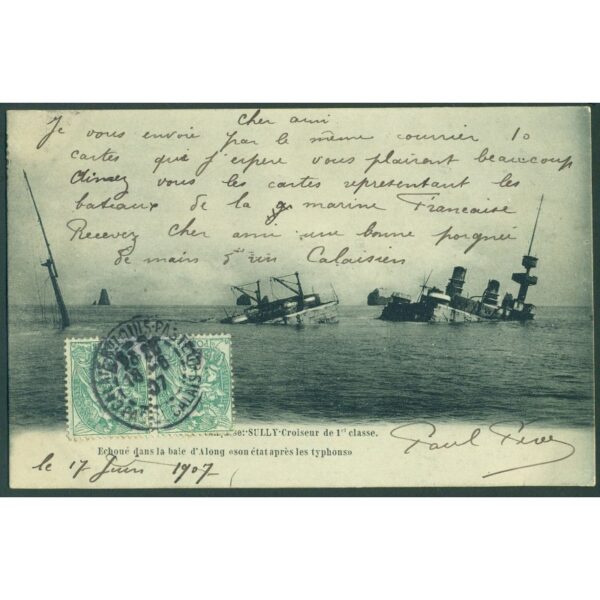 Cher ami
Je vous envoie par le même courrier 10
cartes que j'espere vous plairont beaucoup
Aimez vous les cartes representant les
bateaux de la marine Francaise
Recevez cher ami une bonne poignée
de mains d'un Calaisien
SULLY-Croiseur de 1er classe.
Echoué dans la baie d'Along «son état après les typhons»
Paul
le 17 Juin 1907